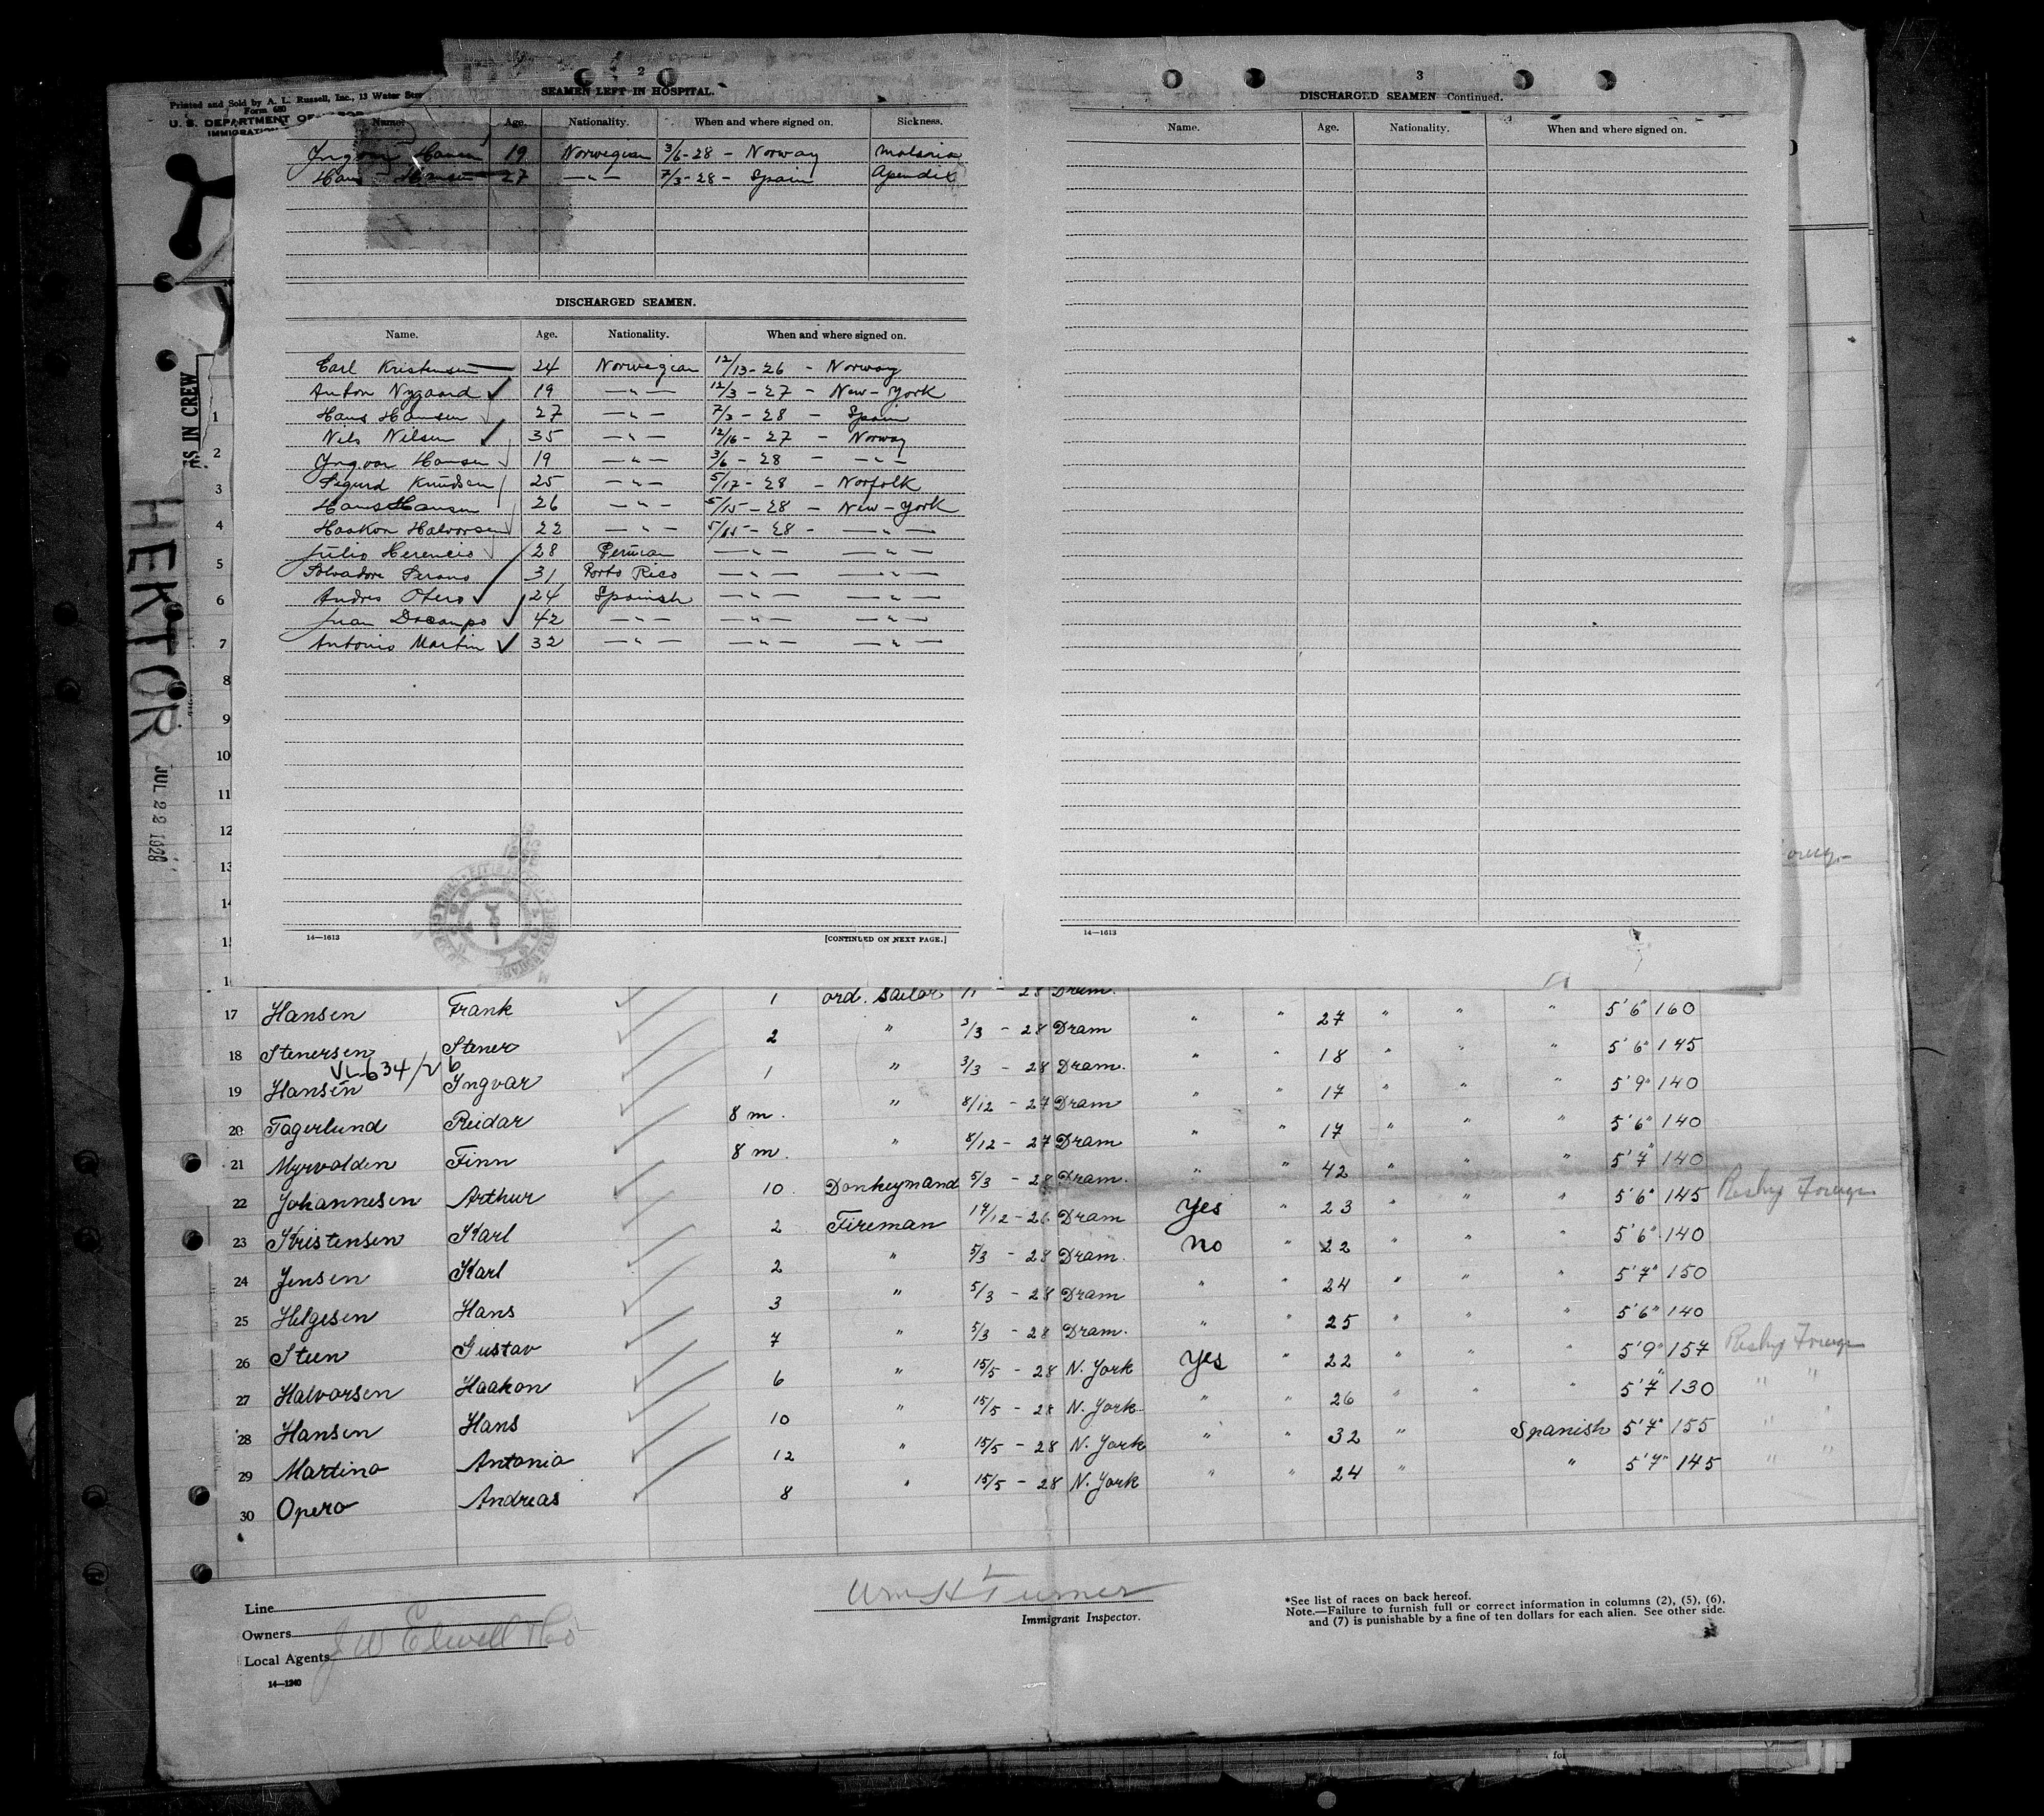 Printed and Sold by A. L. Russell, Inc., 13 Water Str
Form 680
U. S. DEPARTMENT OF LABOR
IMMIGRATION
S IN CREW
HEKTOR
JUL 22 1928
2
SEAMEN LEFT IN HOSPITAL.
Name. Age. Nationality. When and where signed on. Sickness.
Yngvar Hansen 19 Norwegian 3/6-28 - Norway Malaria
Hans Hansen 27 — " — 7/3-28 - Spain Apendix
DISCHARGED SEAMEN.
Name. Age. Nationality. When and where signed on.
Carl Kristensen 24 Norwegian 12/13-26 - Norway
Anton Nygaard ✓ 19 — " — 12/3-27 - New-York
Hans Hansen ✓ 27 — " — 7/3-28 - Spain
Nils Nilsen ✓ 35 — " — 12/16-27 - Norway
Yngvar Hansen ✓ 19 — " — 3/6-28 - — " —
Sigurd Knudsen 25 — " — 5/17-28 - Norfolk
Hans Hansen 26 — " — 5/15-28 - New-York
Haakon Halvorsen ✓ 22 — " — 5/15-28 - — " —
Julio Herencio ✓ 28 Peruian — " — — " —
Salvadore Serano ✓ 31 Porto Rico — " — — " —
Andres Otero ✓ 24 Spainsh — " — — " —
Juan Docampo ✓ 42 — " — — " — — " —
Antonio Martin ✓ 32 — " — — " — — " —
14—1613 [CONTINUED ON NEXT PAGE.]
3
DISCHARGED SEAMEN Continued.
Name. Age. Nationality. When and where signed on.
14—1613
1
2
3
4
5
6
7
8
9
10
11
12
13
14
17 Hansen Frank ✓ 1 ord. sailor 28 Dram.
18 Stenersen Stener ✓ 2 " 3/3 - 28 Dram " " 27 " " " 5'6" 160
19 Hansen Yngvar ✓ 1 " 3/3 - 28 Dram. " " 18 " " " 5'6" 145
20 Fagerlund Reidar ✓ 8 m. " 8/12 - 27 Dram " " 17 " " " 5'9" 140
21 Myrvolden Finn ✓ 8 m. " 8/12 - 27 Dram " " 17 " " " 5'6" 140
22 Johannesen Arthur ✓ 10 Donkeymand 5/3 - 28 Dram. " " 42 " " " 5'7" 140
23 Kristensen Karl ✓ 2 Fireman 14/12 - 26 Dram Yes " 23 " " " 5'6" 145 Reship Foreign
24 Jensen Karl ✓ 2 " 5/3 - 28 Dram. no " 22 " " " 5'6" 140
25 Helgesen Hans ✓ 3 " 5/3 - 28 Dram " " 24 " " " 5'7" 150
26 Steen Gustav ✓ 7 " 5/3 - 28 Dram. " " 25 " " " 5'6" 140
27 Halvorsen Haakon ✓ 6 " 15/5 - 28 N. York Yes " 22 " " " 5'9" 157 Reship Foreign
28 Hansen Hans ✓ 10 " 15/5 - 28 N. York " " 26 " " " 5'7" 130 " "
29 Martino Antonio ✓ 12 " 15/5 - 28 N. York " " 32 " Spanish 5'7" 155 " "
30 Opero Andreas ✓ 8 " 15/5 - 28 N. York " " 24 " " 5'7" 145 " "
Line
Owners
Local Agents J W Elwell & Co
14—1240
Wm H Turner
Immigrant Inspector.
*See list of races on back hereof.
Note.—Failure to furnish full or correct information in columns (2), (5), (6),
and (7) is punishable by a fine of ten dollars for each alien. See other side.